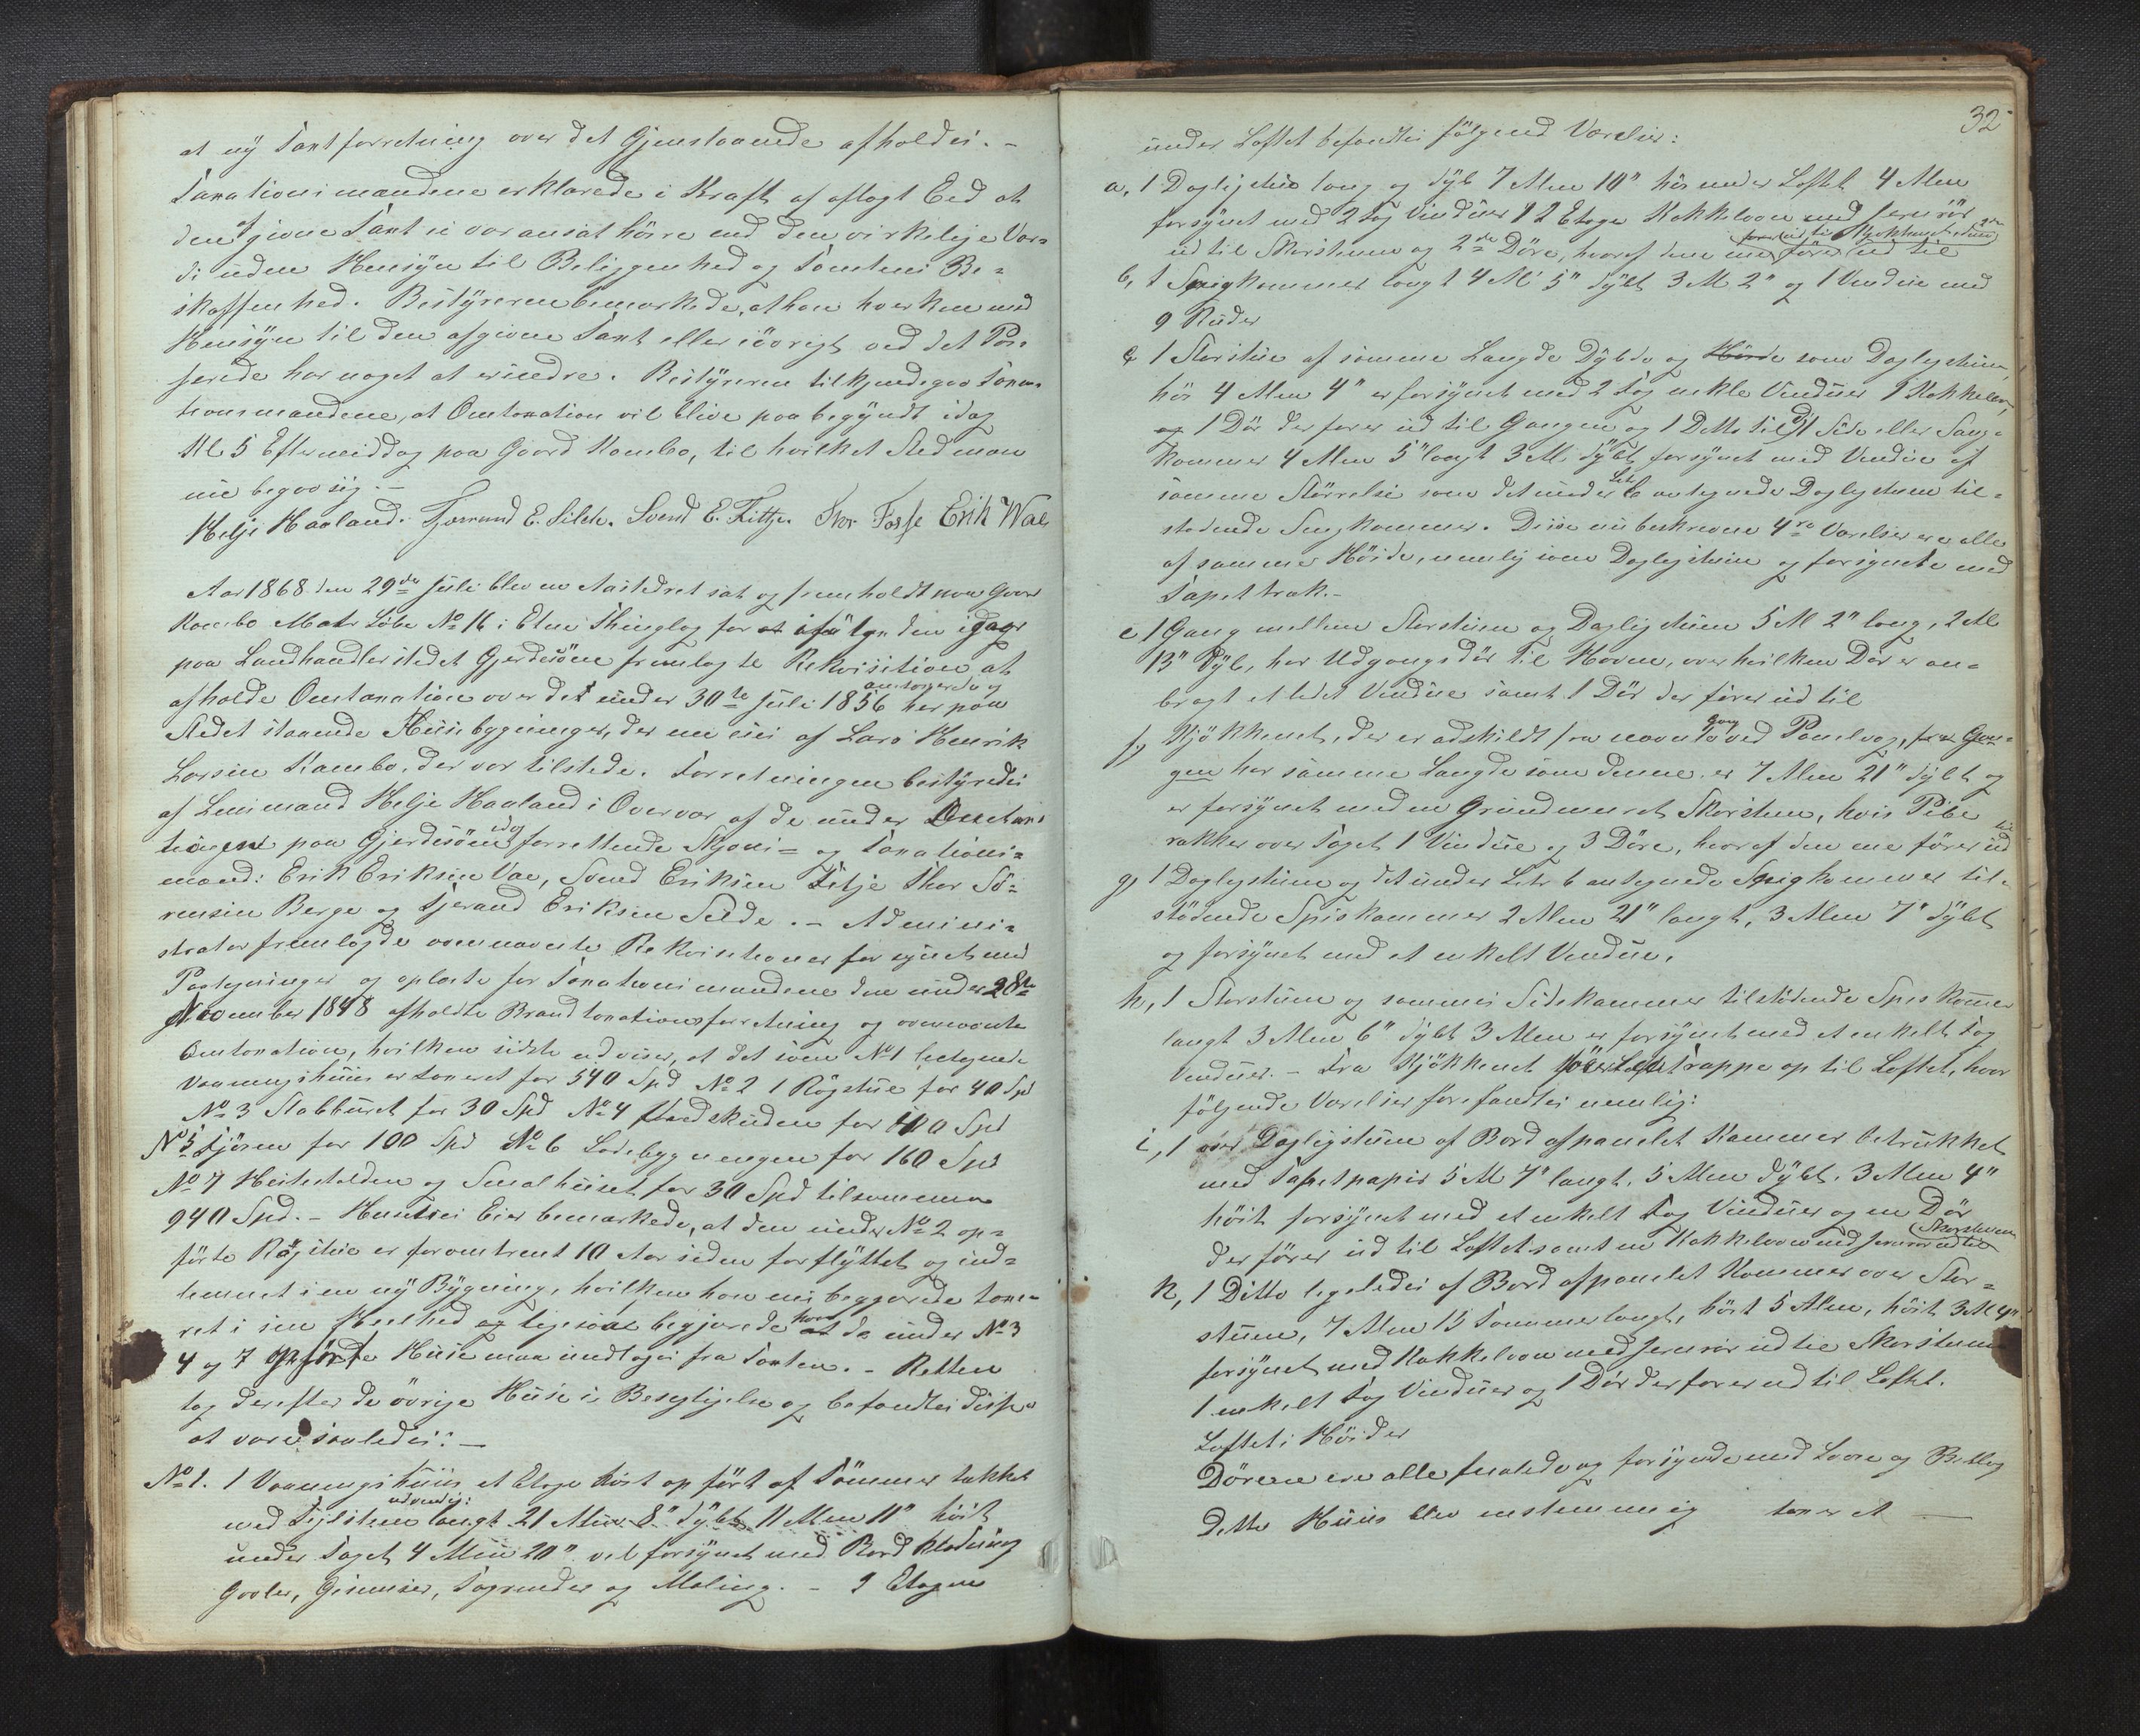 at ny Taxtforretning over det Gjenstaaende afholdes. –
Taxationsmændene erklærede i Kraft af aflagt Eed at
den afgivne Taxt ei var ansat høire end den virkelige Vær-
di uden Hensyn til Beliggenhed og Tomtens Be-
skaffenhed. Bestyreren bemærkede, at han hverken med
Hensyn til den afgivne Taxt eller iøvrigt ved det Pas-
serede har noget at erindre. Bestyreren tilkjendegav Taxa-
tionsmændene, at Omtaxation vil blive paabegyndt idag
Kl 5 Eftermiddag paa Gaard Kambo, til hvilket Sted man
nu begav sig. –
Helje Haaland. Tjerand E. Silde. Svend E. Fittje. Thor Erik Wae
Aar 1868 den 29de Juli blev en Aastedret sat og fremholdt paa Gaard
Kambo Matr Løbe No 16 i Etne Thinglag for at ifølge den idag
paa Landhandlerstedet Gjerdesøen fremlagte Rekvisition at
afholde Omtaxation over det under 30te Juli 1856 omtaxerede og her paa
Stedet staaende Huusbygninger, der nu eies af Lars Henrik
Larsen Kambo, der var tilstede. Forretningen bestyredes
af Lensmand Helje Haaland i Overvær af de under Omtaxa-
tionen paa Gjerdesøen idag forrettende Skjøns- og Taxations-
mænd: Erik Eriksen Vae, Svend Eriksen Fitje Thor Sø-
rensen Berge og Tjerand Eriksen Silde. – Admini-
strator fremlagde ovennævnte Rekvisitioner forsynet med
Paategninger og oplæste for Taxationsmændene den under 28de
November 1848 afholdte Brandtaxationsforretning og ovennævnte
Omtaxation, hvilken sidste udviser, at det som No 1 betegnede
Vaaningshuus er taxeret for 540 Spd No 2 1 Røgstue for 40 Spd
No 3 Stabburet for 30 Spd No 4 Vedskuden for 40 Spd
No 5 Fjøsen for 100 Spd No 6 Ladebygningen for 160 Spd
No 7 Hestestalden og Smalhuset for 30 Spd tilsammen
940 Spd. – Husets Eier bemærkede, at den under No 2 op-
førte Røgstue er for omtrent 10 Aar siden forflyttet og ind-
lemmet i en ny Bygning, hvilken han nu begjærede taxe-
ret i sin Heelhed og ligesaa begjærede han at de under No 3
4 og 7 opførte Huse maa undtages fra Taxten. – Retten
tog derefter de øvrige Huse i Besigtigelse og befandtes disse
at være saaledes: –
No 1. 1 Vaaningshuus et Etage høit opført af Tømmer takket
med Teglsteen udvendig: langt 21 Alen 8" dybt 11 Alen 11" høit
under Taget 4 Alen 20" vel forsynet med Bord klædning
Gavler, Gesimser, Tagrender og Maling. – I Etagen
32
under Loftet befandtes følgende Værelser:
a, 1 Dagligstue lang og dyb 7 Alen 10" høi under Loftet 4 Alen
forsynet med 2 Fag Vinduer 1 2 Etages Kakkelovn med Jernrør
ud til Skorstenen og 2de Døre, hvoraf den ene fører ud til
b, 1 Spiskammer langt 4 Al 5" dybt 3 Al 2" og 1 Vindue med
9 Ruder
c 1 Storstue af samme Længde Dybde og Høide som Dagligstuen,
høi 4 Alen 4" er forsynet med 2 Fag enkle Vinduer 1 Kakkelovn,
og 1 Dør der fører ud til Gangen og 1 Detto til d) 1 Side eller Seng-
kammer 4 Alen 5" langt 3 Al dybt forsynet med Vindue af
samme Størrelse som det under Litr b antegnede Dagligstuen til-
stødende Sengkammer. Disse nu beskrevne 4re Værelser ere alle
af samme Høide, nemlig som Dagligstuen og forsynete med
Tapet træk. –
e 1 Gang mellem Storstuen og Dagligstuen 5 Al 2" lang, 2 Al
13" dyb, har Udgangsdør til Haven, over hvilken Dør er an-
bragt et lidet Vindue samt 1 Dør der fører ud til
f, Kjøkkenet, der er adskildt fra nævnte gang ved Panelvæg, fra Gan-
gen har samme Længde som denne er 7 Alen 21" dybt og
er forsynet med en Grundmuret Skorsten, hvis Pibe
rækker over Taget 1 Vindue og 3 Døre, hvoraf den ene fører ud til
g, 1 Dagligstuen og det under Litr b antegnede Spiskammer til-
stødende Spiskammer 2 Alen 21" langt, 3 Alen 7" dybt
og forsynet med et enkelt Vindue.
h, 1 Storstuen og sammes Sidekammer tilstødende Speskammer
langt 3 Alen 6" dybt 3 Alen er forsynet med et enkelt Fag
Vinduer. – Fra Kjøkkenet fører Loftstrappe op til Loftet, hvor
følgende Værelser forefandtes nemlig:
i, 1 over Dagligstuen af Bord afpanelet Kammer betrukket
med Tapetpapir 5 Al 7" langt, 5 Alen dybt, 3 Alen 4"
høit forsynet med et enkelt Fag Vinduer og en Dør
der fører ud til Loftet samt en Kakkelovn med Jernrør ud til Skorstenen
k, 1 Ditto ligeledes af Bord afpanelet Kammer over Stor-
stuen, 7 Alen 15 Tommer langt, bært 5 Alen, høit 3 Al 4"
forsynet med Kakkelovn med Jernrør ud til Skorstenen
1 enkelt Fag Vinduer og 1 Dør der fører ud til Loftet.
Loftets Høider
Dørene ere alle malede og forsynede med Laase og Beslag
Dette Huus blev enstemmig taxeret —